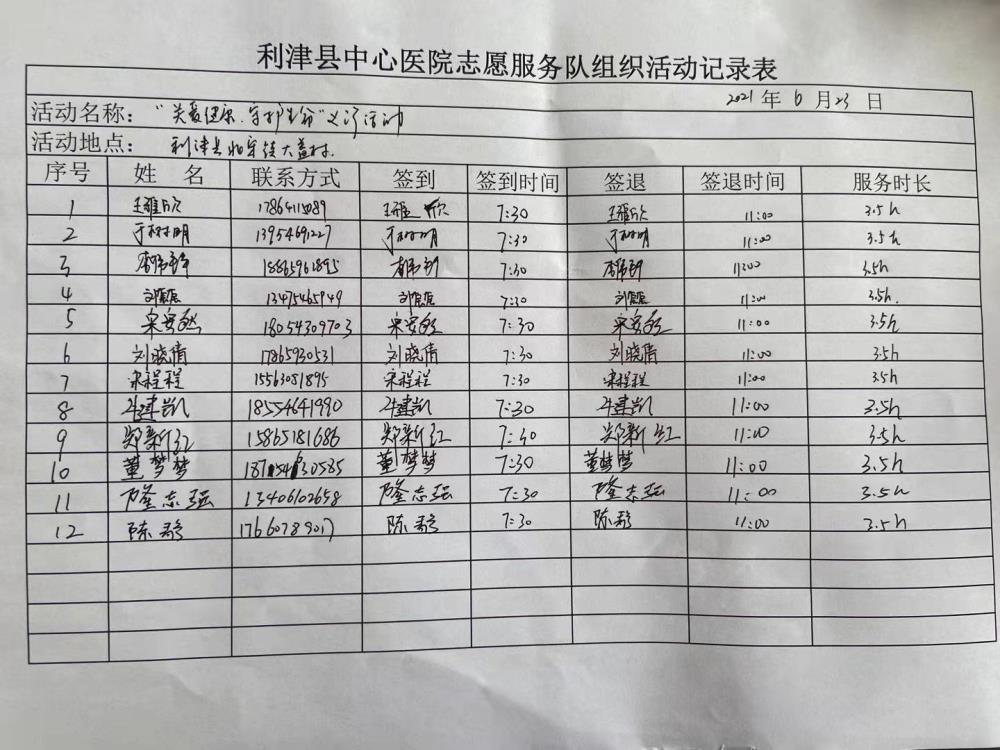 利津县中心医院志愿服务队组织活动记录表
2021 年 6 月 23 日
活动名称： “关爱健康、守护生命”义诊活动
活动地点： 利津县 大盖村
序号 姓 名 联系方式 签到 签到时间 签退 签退时间 服务时长
1 王雅欣 王雅欣 7:30 王雅欣 11:00 3.5h
2 于树明 13954691227 于树明 7:30 于树明 11:00 3.5h
3 18865961895 7:30 11:00 3.5h
4 13475465949 7:30 11:00 3.5h.
5 宋安然 18054309703 宋安然 7:30 宋安然 11:00 3.5h
6 刘晓倩 17865930531 刘晓倩 7:30 刘晓倩 11:00 3.5h
7 宋程程 15563081895 宋程程 7:30 宋程程 11:00 3.5h
8 牛建凯 18554641990 牛建凯 7:30 牛建凯 11:00 3.5h
9 郑新红 15865181686 郑新红 7:30 郑新红 11:00 3.5h
10 董梦梦 董梦梦 7:30 董梦梦 11:00 3.5h
11 隆志强 13406102658 隆志强 7:30 隆志强 11:00 3.5h
12 17660789017 7:30 11:00 3.5h